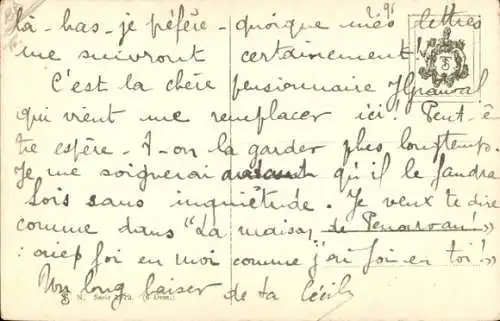 là-bas - je préfère - quoique mes lettres
me suivront certainement!
C'est la chère pensionnaire
qui vient me remplacer ici! Peut-ê
tre espère-t-on la garder plus longtemps.
Je me soignerai autant qu'il le faudra
Sois sans inquiétude. Je veux te dire
comme dans "La maison de Penarvan!"
: aie foi en moi comme j'ai foi en toi!"
Un long baiser de ta Cécile
N. Serie